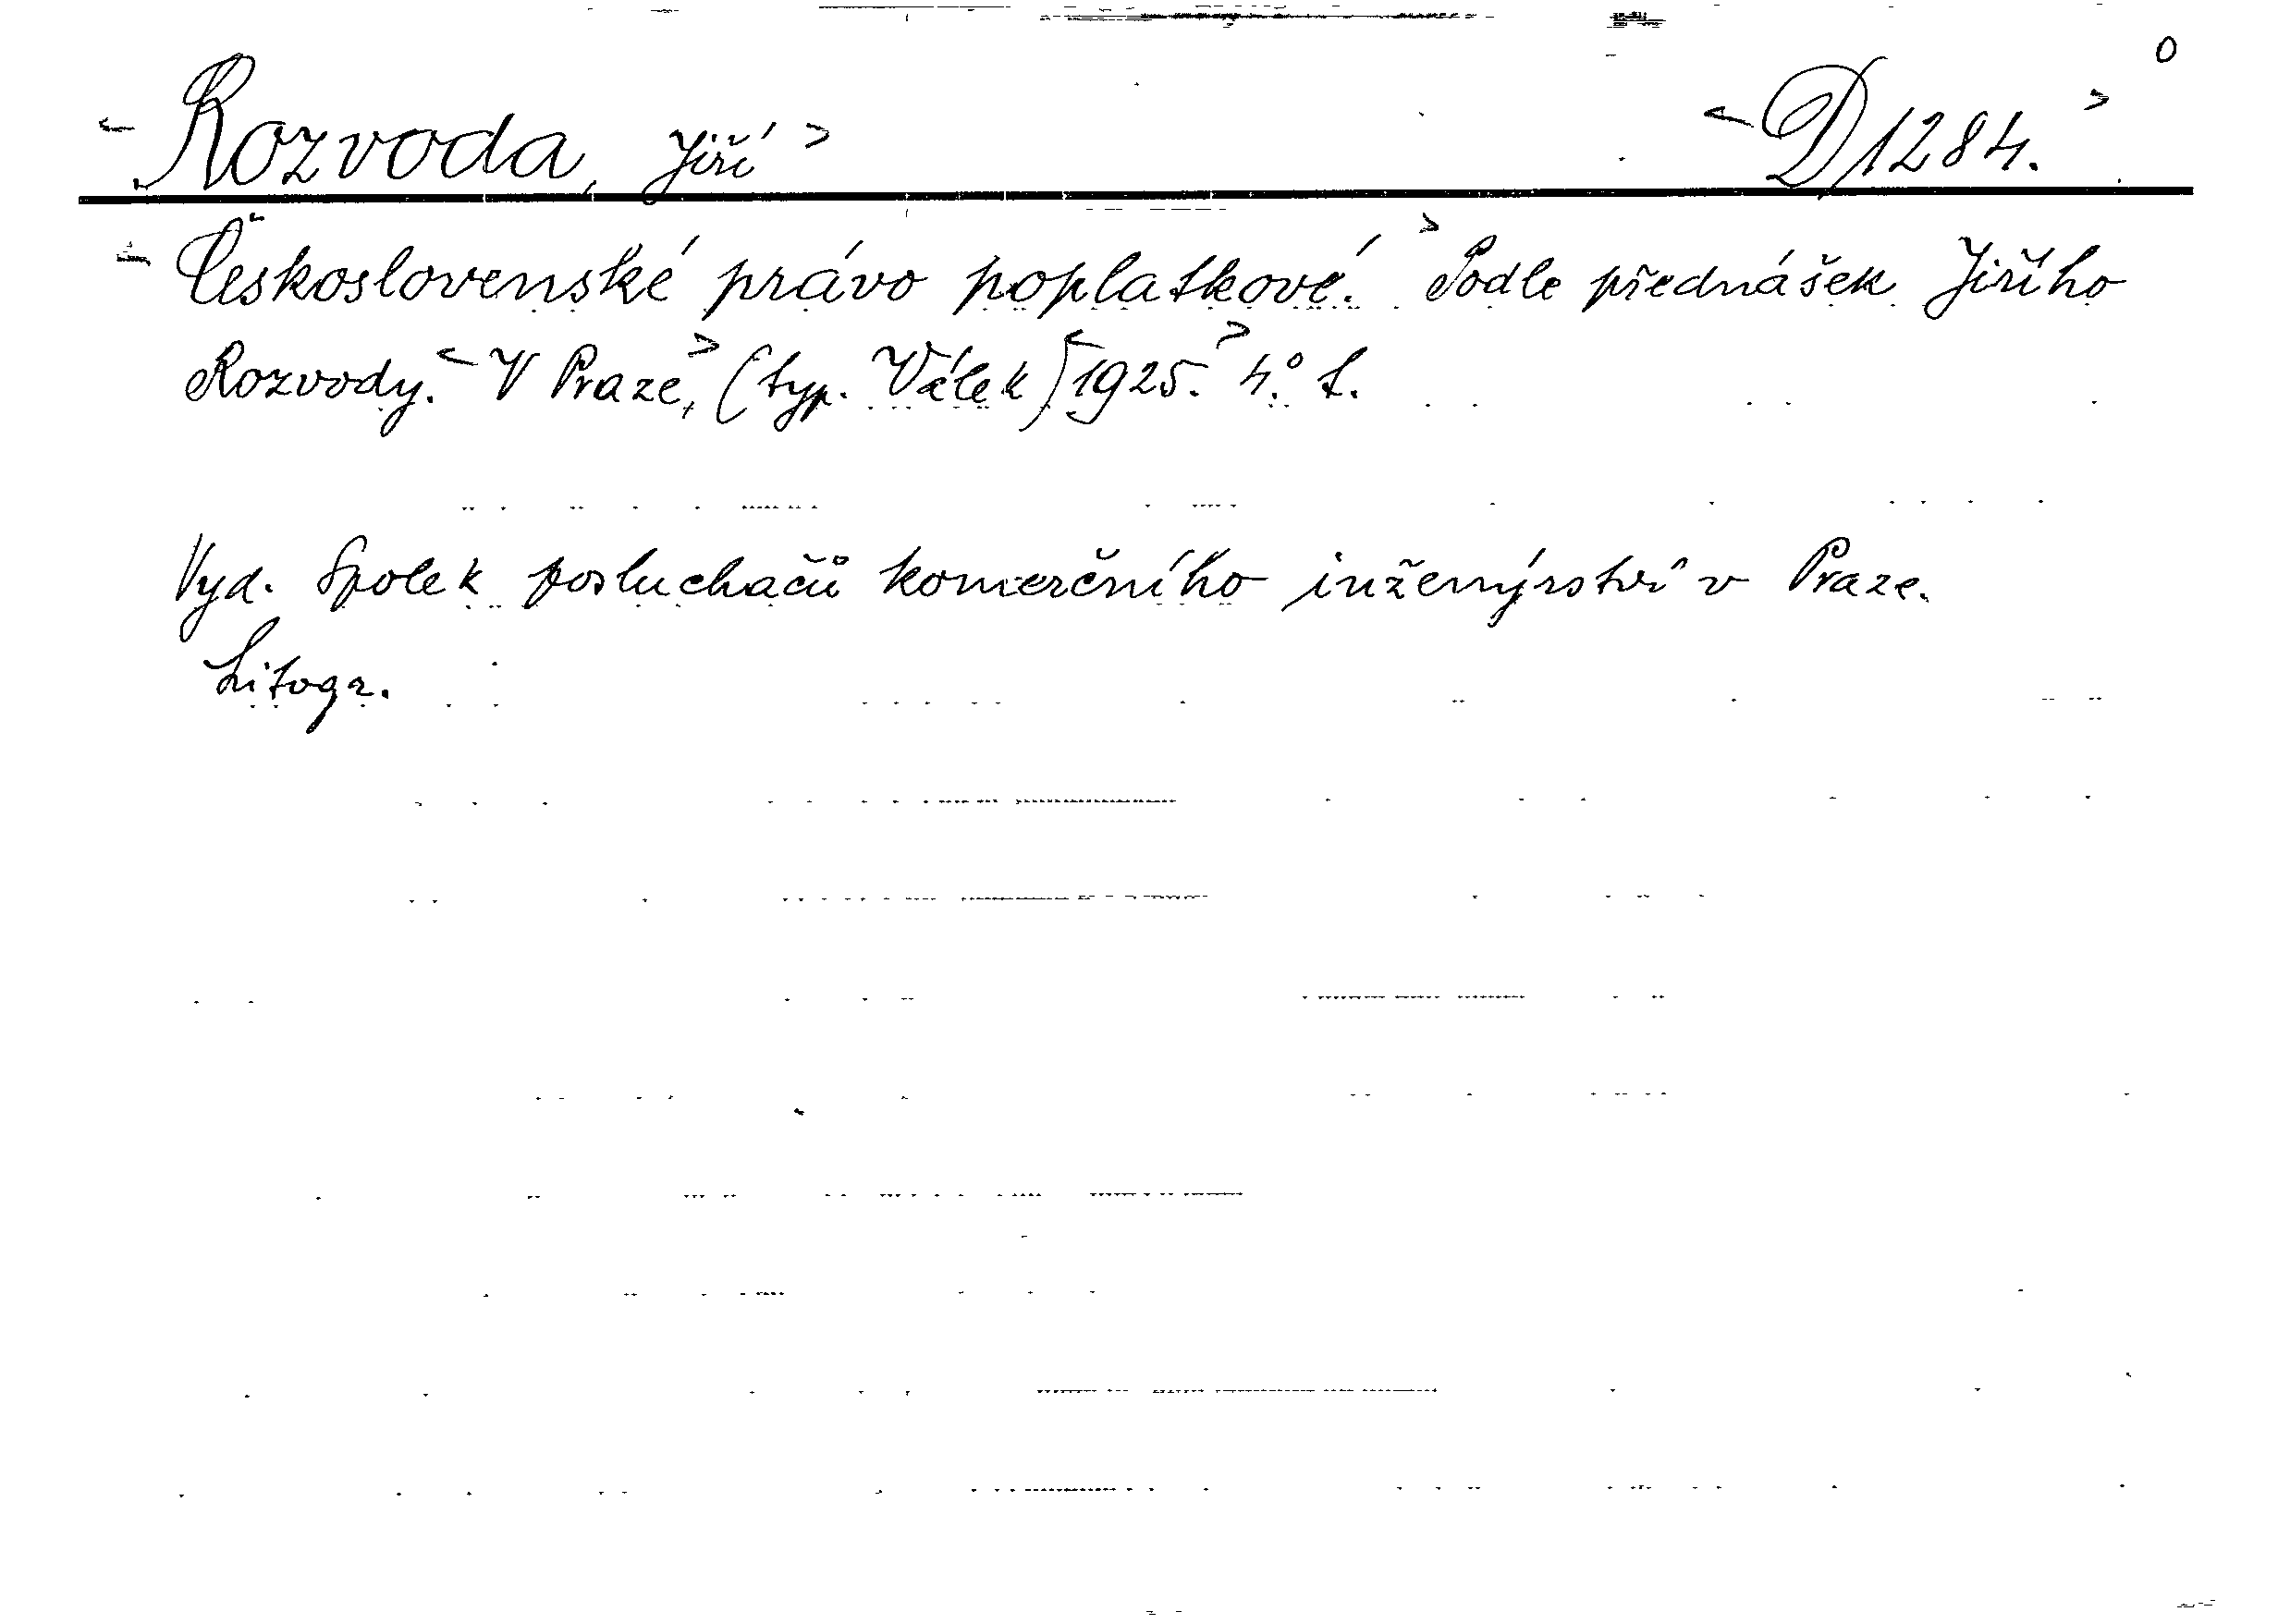 0
< Rozvoda, Jiří > < D 1284. >
< Československé právo poplatkové. > Podle přednášek Jiřího
Rozvody. < V Praze, > (typ. Válek) < 1925. > 4.° L.
Vyd. Spolek posluchačů komerčního inženýrství v Praze.
Litogr.